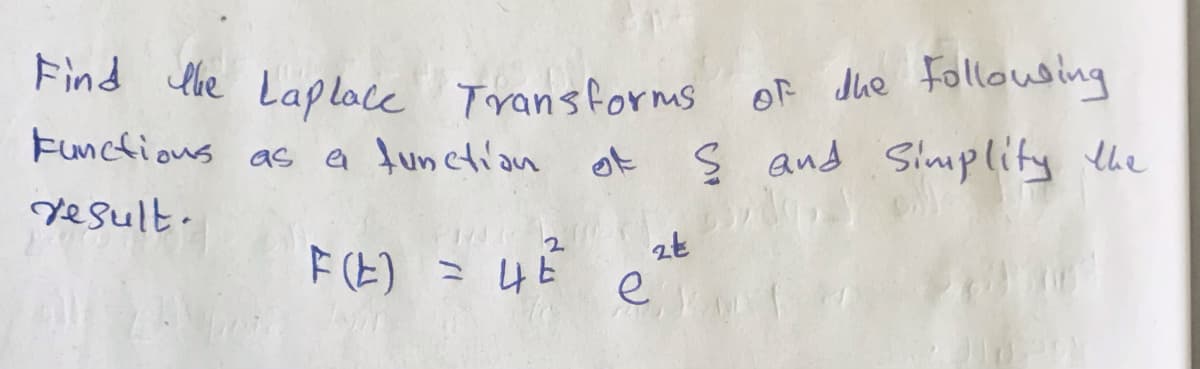 Find the Laplace Transforms of the following
Functions as a function of s and Simplify the
result.
F(t) = 4t² e^{2t}